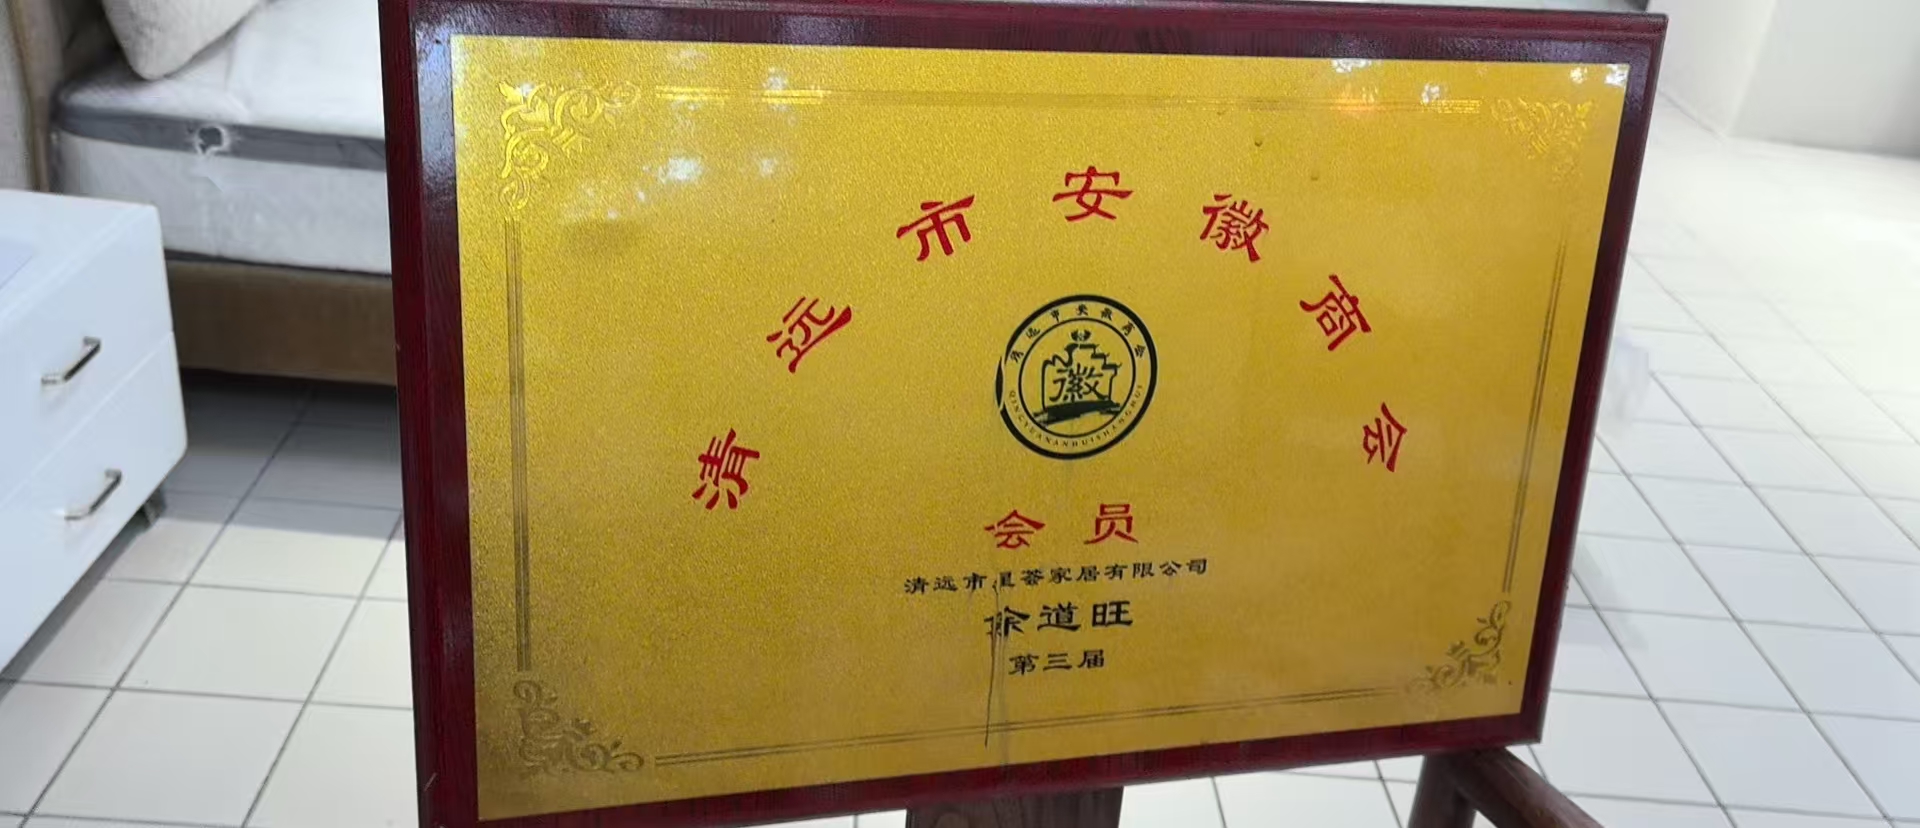 清远市安徽商会
清远市安徽商会
徽
QINGYUANANHUISHANGHUI
会员
清远市星荟家居有限公司
徐道旺
第三届